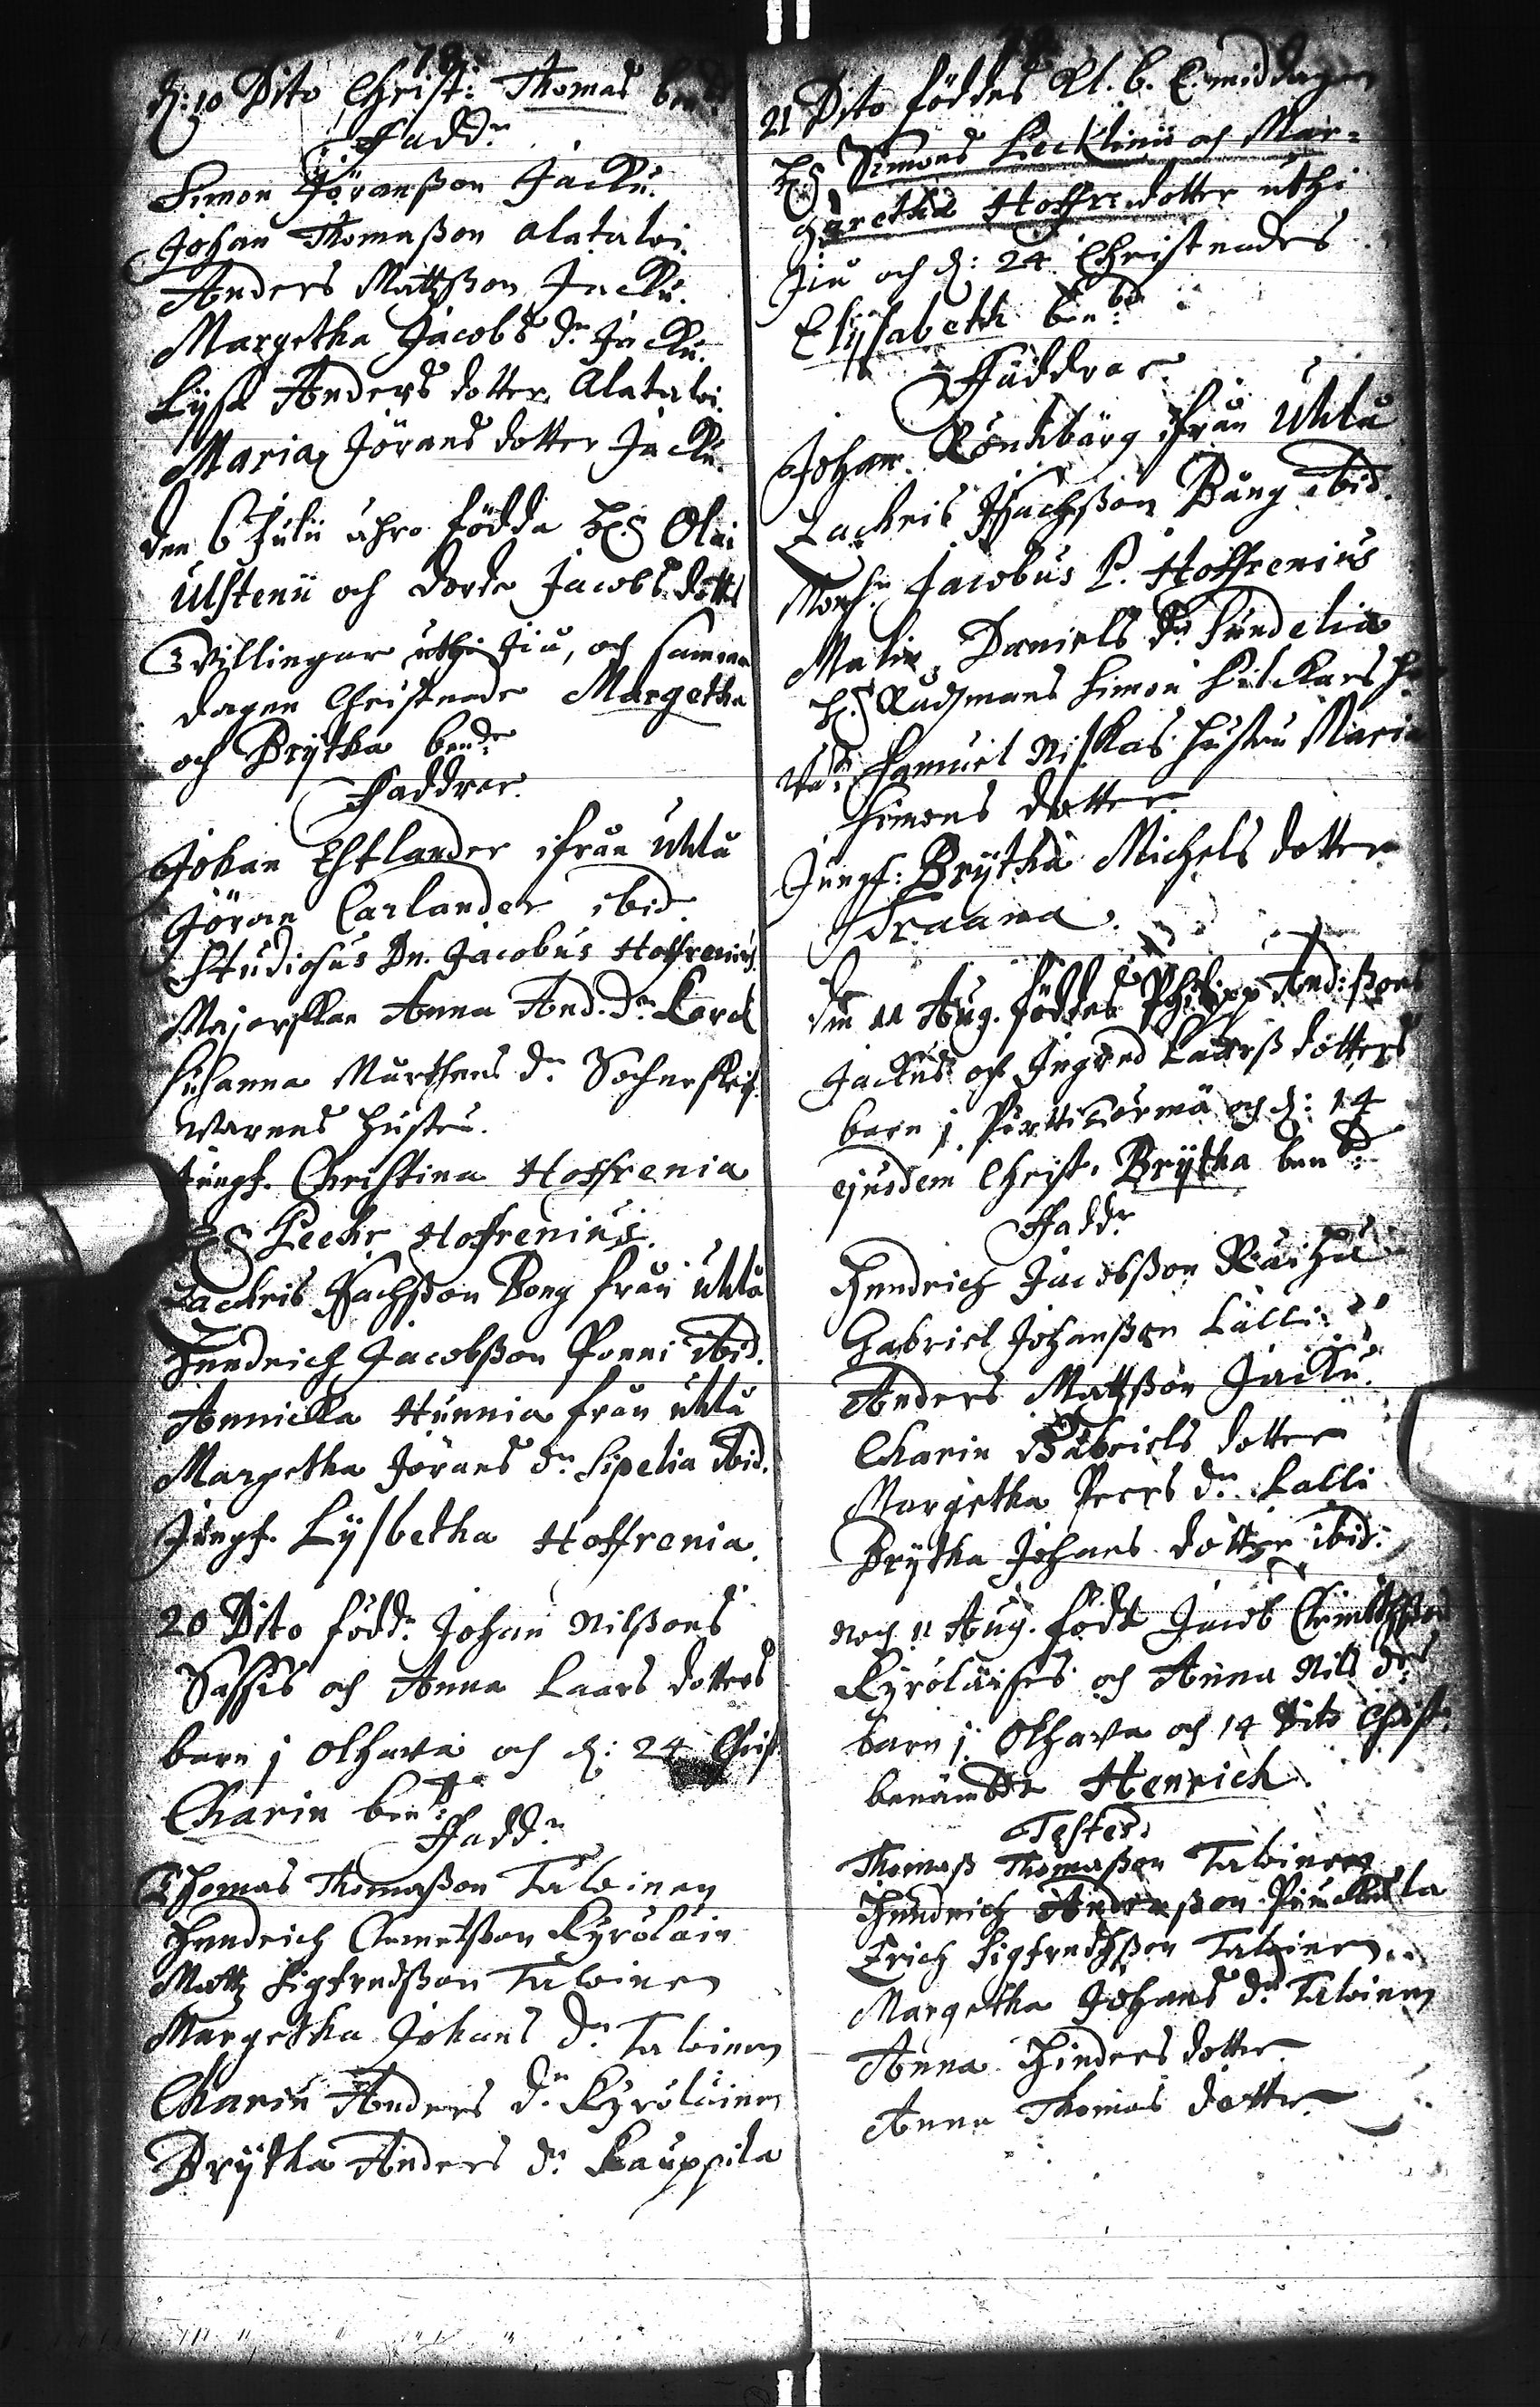 d: 10 Dito Christ: Thomas ben:d
Fadd:r
Simon Jöranßon Jacku.
Johan Thomaßon Alataloi.
Anders Mattzßon Jacku.
Margetha Jacobs d:r Jacku.
Lysa Anders dotter Alatalvi.
Maria Jörans dotter Jacku.
Den 6 Julii ähro födda H:s Olai
Ulstenii och Jacobs dotters
Tvillingar uthi Jio, och samma
dagen Christnade Margetha
och Brytha ben:de
Faddrar.
Johan Estlander ifrån Uhlå
Jöran Carlander ibid.
Studiosus Dn. Jacobus Hoffrenius.
Majorskan Anna And. d:r
Susanna Murthens d:r Sochneskrif-
warens hustru.
Jungf. Christina Hoffrenia
H:s Peehr Hoffrenius.
Zachris Isachßon Bong från Uhlå
Hendrich Jacobßon Ponni ibid.
Annicka Hunnia från Uhlå
Margetha Jörans d:r Sipelia ibid.
Jungf. Lysbetha Hoffrenia.
20 Dito född:r Johan Nilßons
Sassis och Anna Laars dotters
barn j Olhava och d: 24 Christ
Charin ben:d
Fadd:r
Thomas Thomaßon Talvinen
Hendrich Clemetßon Kyröläin
Mattz Sigfredßon Talvinen
Margetha Johans d:r Talvinen
Charin Anders d:r Kyröläinen
Brytha Anders d:r Kauppila
21 Dito föddes Kl. 6. E. middagen
H:s Simons Lecklinii och Mar=
garetha Hoffredotter uthi
Jio och d: 24 Christnades
Elysabeth ben:d
Fäddrar.
Johan Röndbärg ifrån Uhlå
Zachris Isachßon Bång ibid.
Mons:r Jacobus P. Hoffrenius
Malin Daniels d:r Sundelia
H:s Rudzmans Simon
Samuel Niskas hustru Maria
Simons dotter.
Jungf: Brytha Michels dotter
Fraama.
Den 11 Aug. föddes Philipp And:ßons
Jackus och Ingred Laarß dotters
barn j och d: 14
ejusdem Christ. Brytha ben:d
Fadd:r
Hendrich Jacobßon
Gabriel Johanßon Lalli
Anders Mattßon Jacku.
Charin Gabriels dotter
Margetha Peers d:r Lalli
Brytha Johans dotter ibid:
Noch 11 Aug. födt Jacob Clemetzßon
Kyröläises och Anna Nils d:rs
barn j Olhava och 14 Dito Christ.
benämbdt Henrich
Testes
Thomaß Thomaßon Talvinen
Hendrich Anderßon
Erich Sigfredßon Talvinen
Margetha Johans d:r Talvinen
Anna Hinders dotter
Anna Thomas dotter